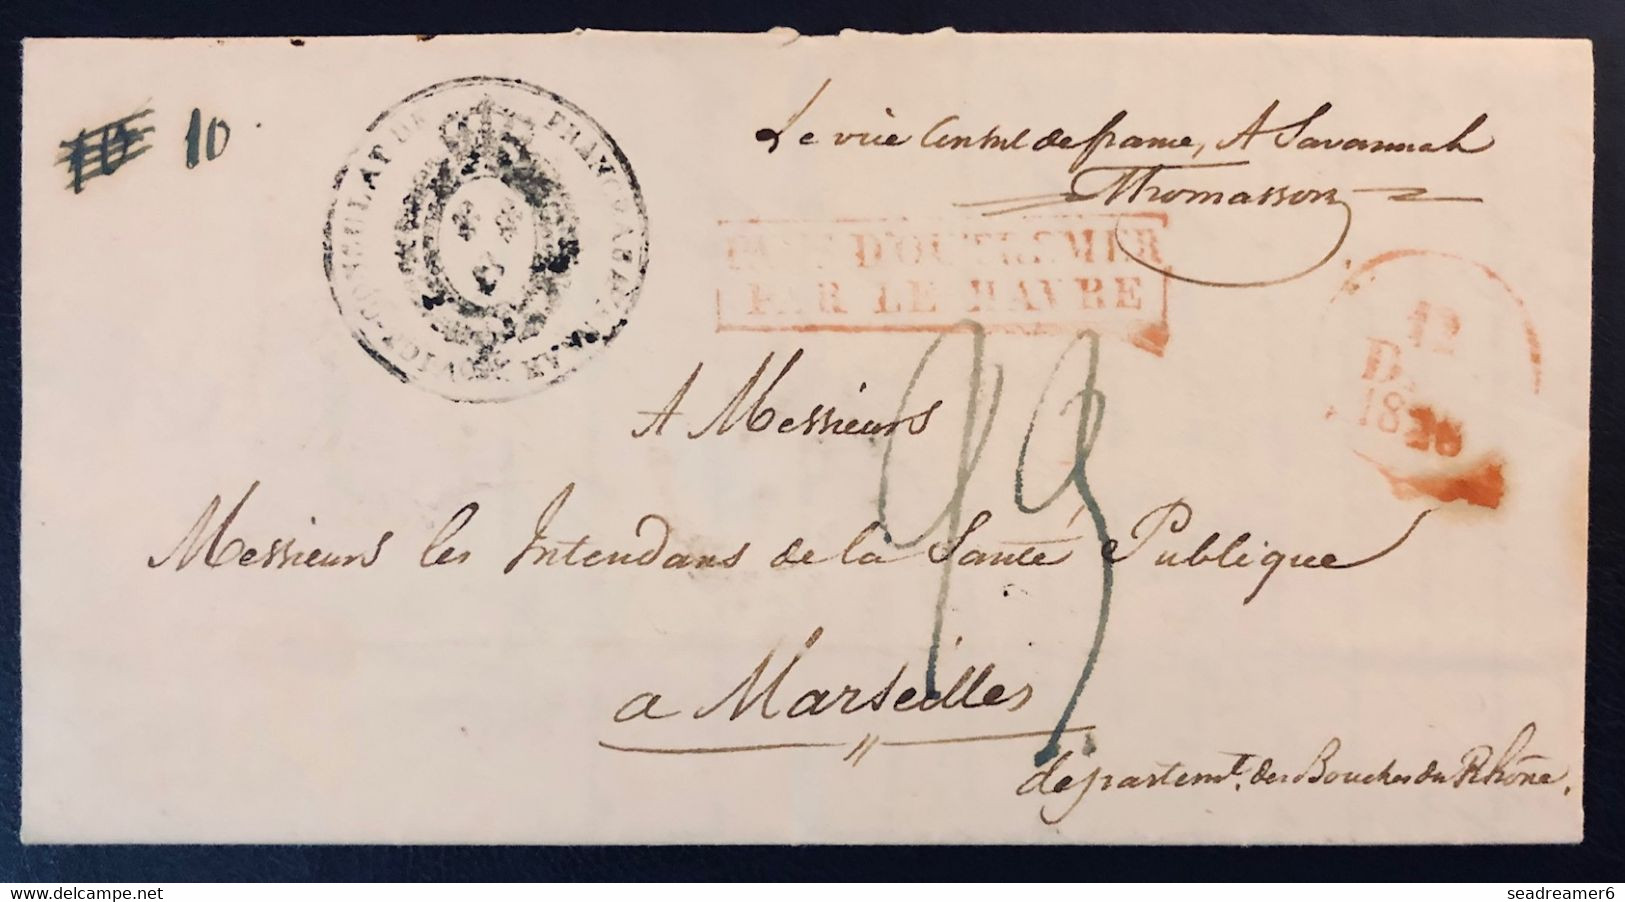 10 10
VICE-CONSULAT DE FRANCE A SAVANNAH
Le vice Consul de france, A Savannah
Thomasson
PAYS D'OUTREMER
PAR LE HAVRE
12
1826
23
A Messieurs
Messieurs les Intendans de la Santé Publique
a Marseilles
départemt. des Bouches du Rhône.
www.delcampe.net
seadreamer6